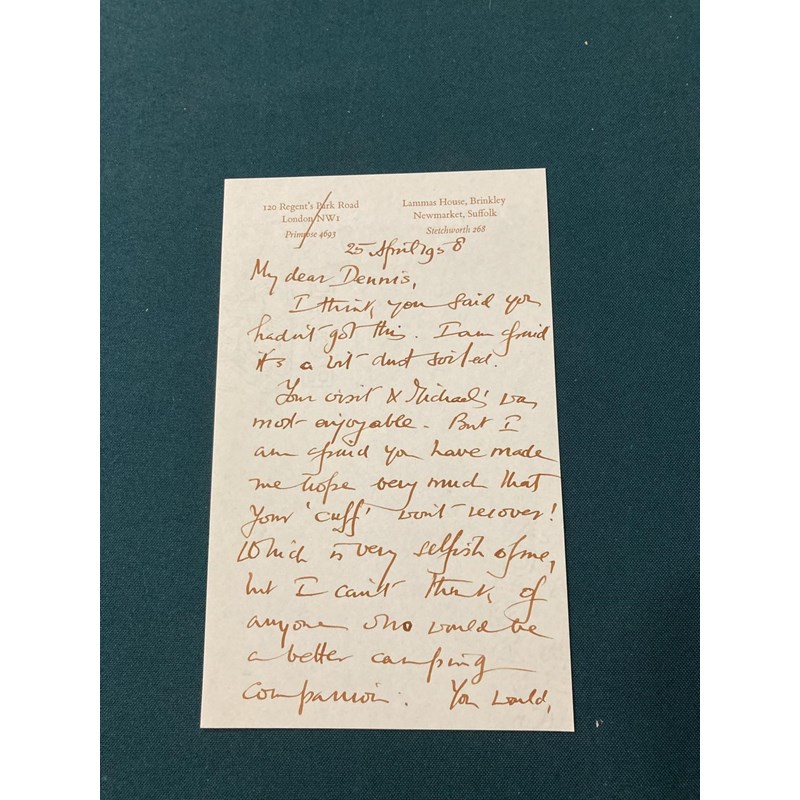 120 Regent's Park Road
London NW1
Primrose 4693
Lammas House, Brinkley
Newmarket, Suffolk
Stetchworth 268
25 April 1958
My dear Dennis,
I think you said you
hadn't got this. I am afraid
it's a bit dust soiled.
Your visit & Michael's was
most enjoyable. But I
am afraid you have made
me hope very much that
your 'cuff' won't recover!
Which is very selfish of me,
but I can't think of
anyone who would be
a better camping
companion. You would,